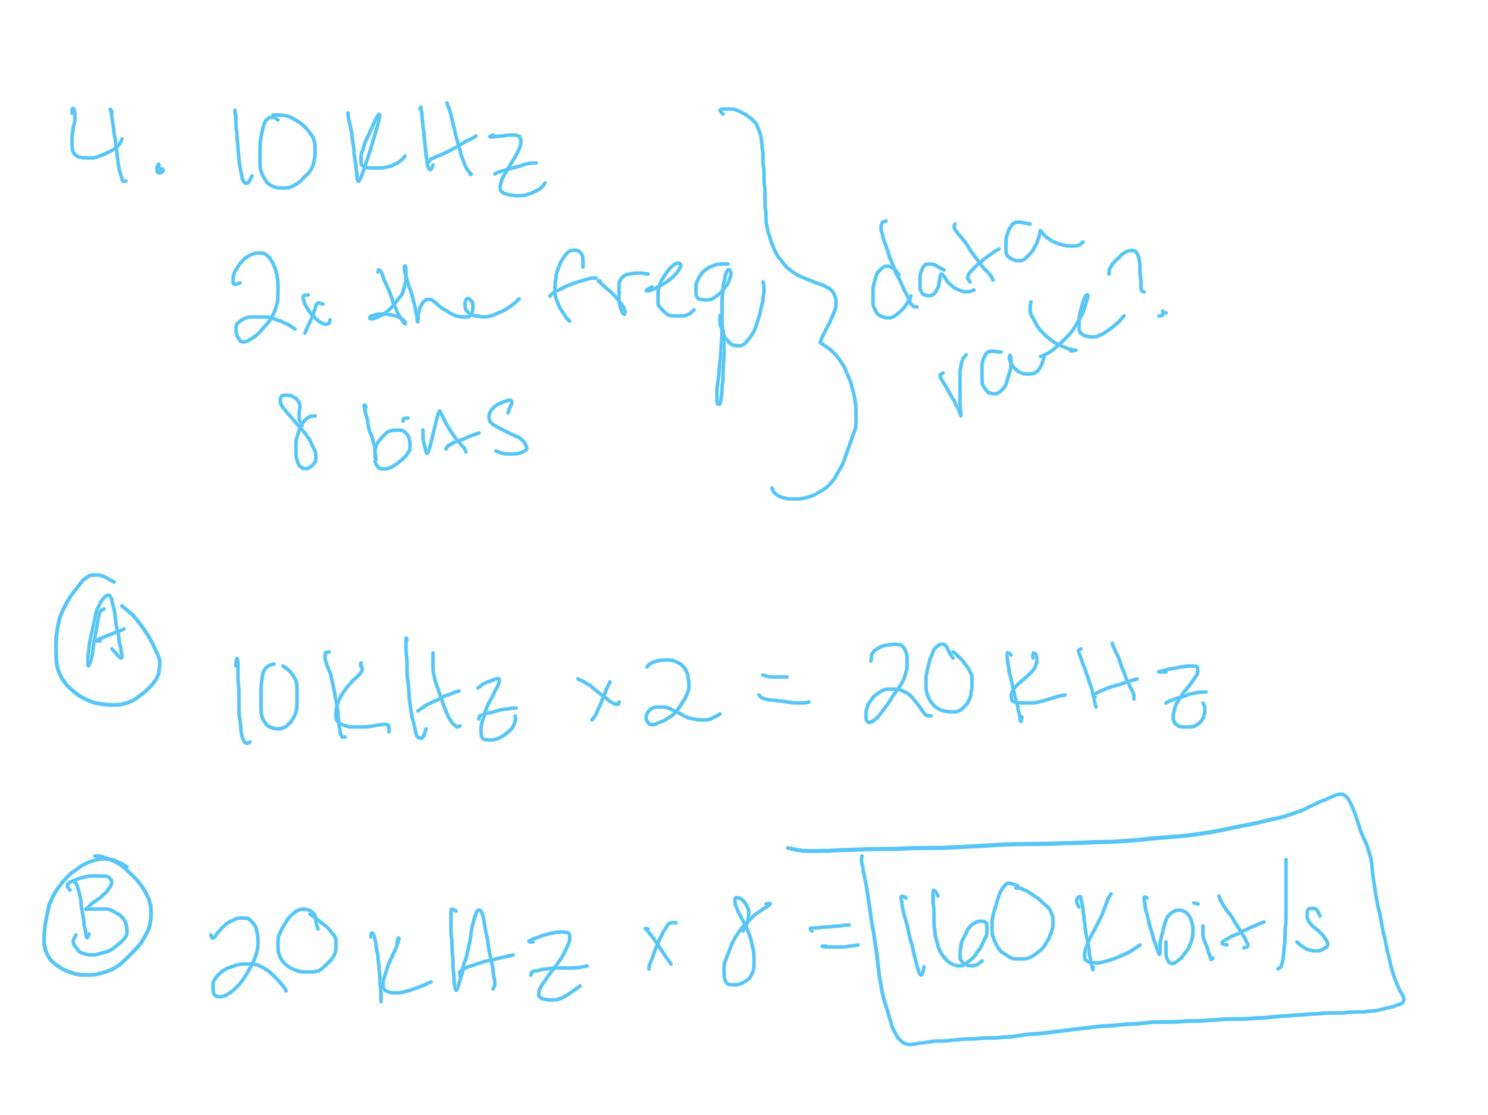 4. 10 KHz
2x the freq
8 bits
data
rate?
A
10 KHz x 2 = 20 KHz
B
20 KHz x 8 = 160 Kbit/s